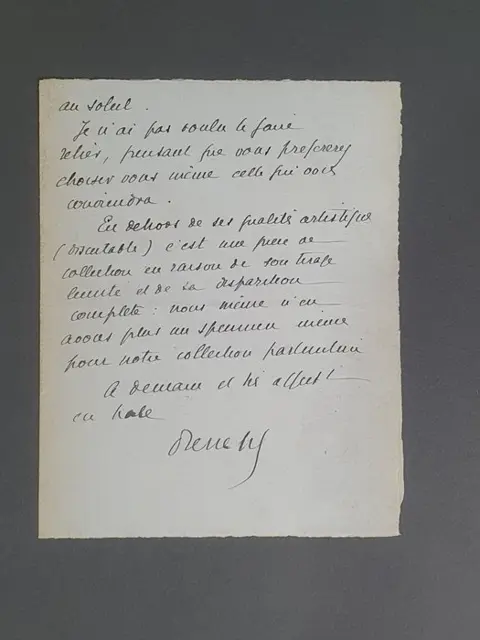 au soleil.
Je n'ai pas voulu le faire
relier, pensant que vous preferez
choisir vous même celle qui vous
conviendra.
En dehors de ses qualités artistiques
(discutable) c'est une pièce de
collection en raison de son tirage
limité et de sa disparition
complète : nous même n'en
avons plus un specimen même
pour notre collection particulière
A demain et très affect
en hate